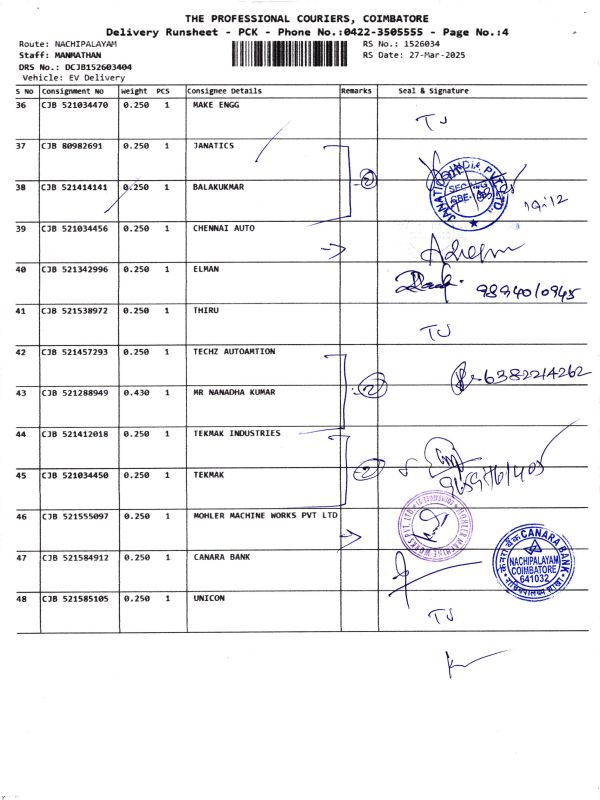 THE PROFESSIONAL COURIERS, COIMBATORE
Delivery Runsheet - PCK - Phone No.:0422-3505555 - Page No.:4
Route: NACHIPALAYAM RS No.: 1526034
Staff: MANMATHAN RS Date: 27-Mar-2025
DRS No.: DCJB152603404
Vehicle: EV Delivery
S No Consignment No Weight PCS Consignee Details Remarks Seal & Signature
36 CJB 521034470 0.250 1 MAKE ENGG TJ
37 CJB 80982691 0.250 1 JANATICS
38 CJB 521414141 0.250 1 BALAKUKMAR 2
JANATICS INDIA PVT LTD
19:12
39 CJB 521034456 0.250 1 CHENNAI AUTO
40 CJB 521342996 0.250 1 ELMAN 9894010945
41 CJB 521538972 0.250 1 THIRU TJ
42 CJB 521457293 0.250 1 TECHZ AUTOAMTION
43 CJB 521288949 0.430 1 MR NANADHA KUMAR 2 6382214262
44 CJB 521412018 0.250 1 TEKMAK INDUSTRIES
45 CJB 521034450 0.250 1 TEKMAK 2
46 CJB 521555097 0.250 1 MOHLER MACHINE WORKS PVT LTD
MOHLER MACHINE WORKS PVT. LTD.
47 CJB 521584912 0.250 1 CANARA BANK
CANARA BANK
NACHIPALAYAM
COIMBATORE
641032
48 CJB 521585105 0.250 1 UNICON TJ